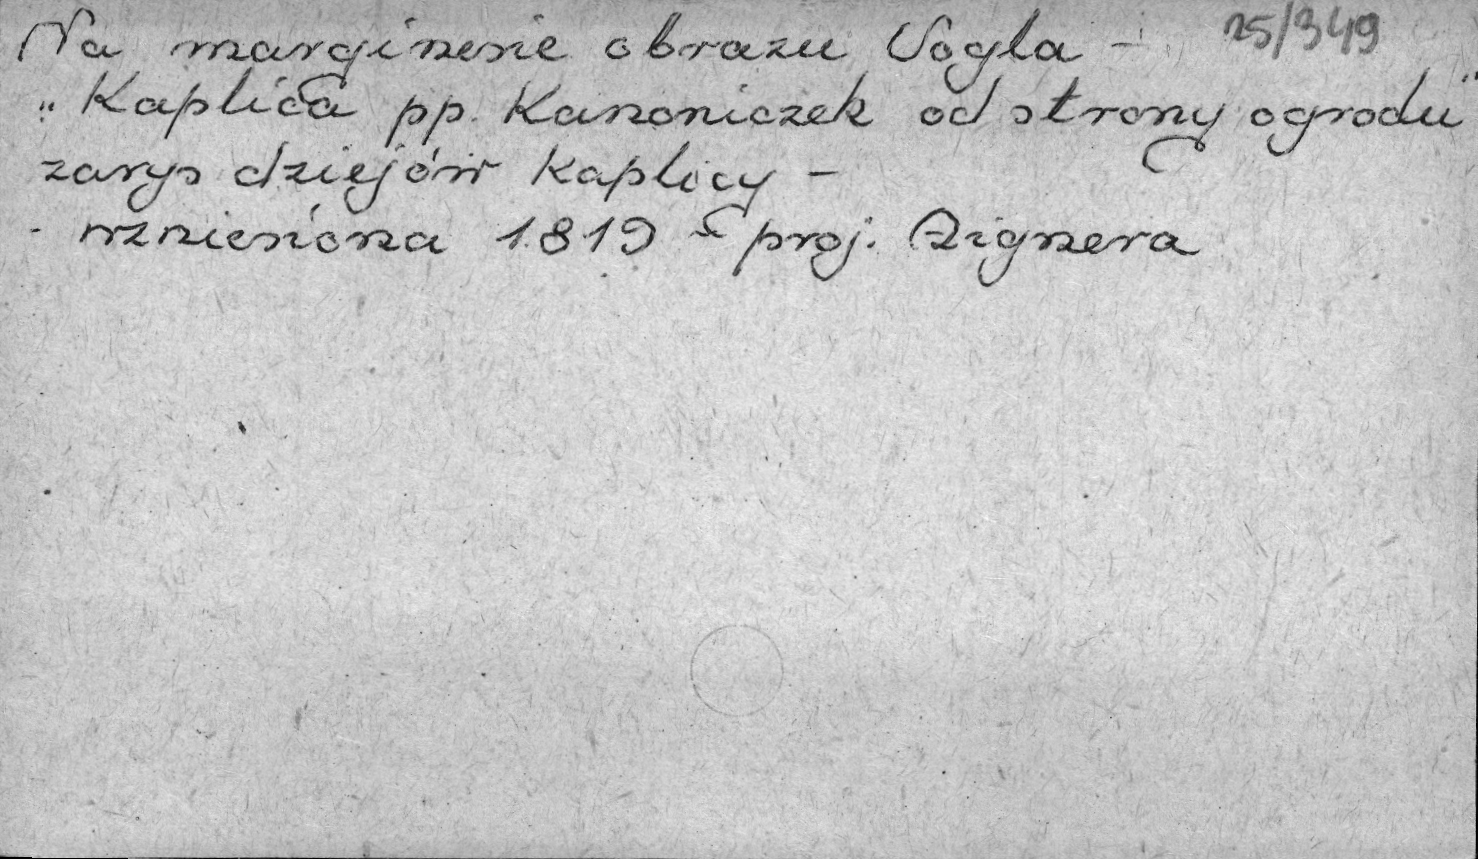 Na marginesie obrazu Vogla - 25/349
„Kaplica pp. Kanoniczek od strony ogrodu"
zarys dziejów kaplicy -
- wzniesiona 1819 proj. Aignera